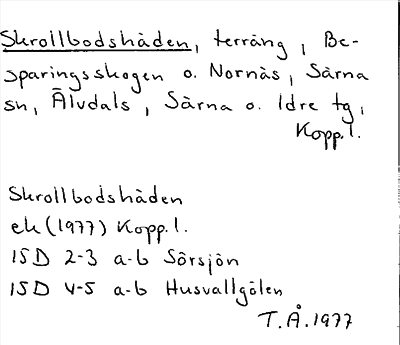 Skrollbodshäden, terräng, Be-
sparingsskogen o. Nornäs, Särna
sn, Älvdals, Särna o. Idre tg,
Kopp.l.
Skrollbodshäden
ek (1977) Kopp.l.
15D 2-3 a-b Sörsjön
15D 4-5 a-b Husvallgölen
T.Å.1977